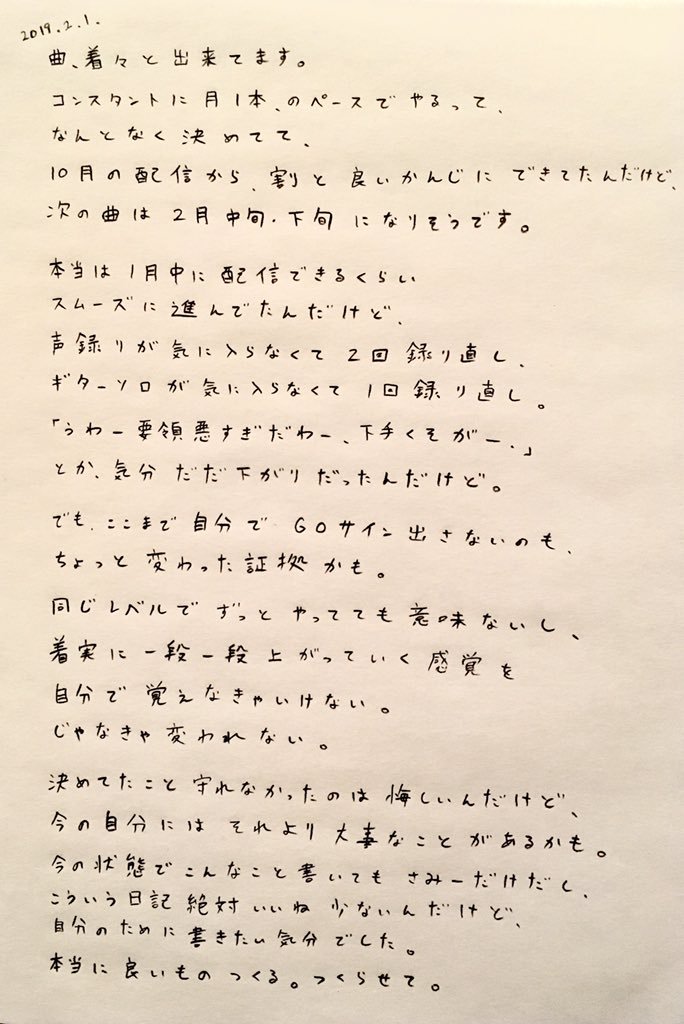 2019.2.1.
曲、着々と出来てます。
コンスタントに月1本、のペースでやるって、
なんとなく決めてて、
10月の配信から、割と良いかんじにできてたんだけど、
次の曲は2月中旬・下旬になりそうです。
本当は1月中に配信できるくらい
スムーズに進んでたんだけど、
声録りが気に入らなくて2回録り直し、
ギターソロが気に入らなくて1回録り直し。
「うわー要領悪すぎだわー、下手くそがー、」
とか、気分だだ下がりだったんだけど。
でも、ここまで自分でGOサイン出さないのも、
ちょっと変わった証拠かも。
同じレベルでずっとやってても意味ないし、
着実に一段一段上がっていく感覚を
自分で覚えなきゃいけない。
じゃなきゃ変われない。
決めてたこと守れなかったのは悔しいんだけど、
今の自分にはそれより大事なことがあるかも。
今の状態でこんなこと書いてもさみーだけだし、
こういう日記絶対いいね少ないんだけど、
自分のために書きたい気分でした。
本当に良いものつくる。つくらせて。